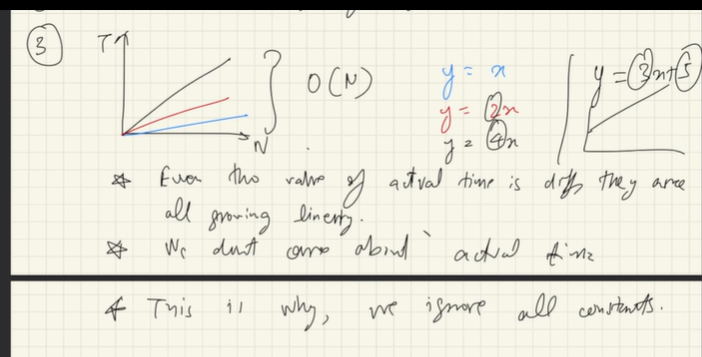 3
T
N
O(N)
y = x
y = 2x
y = 4x
y = 3x+5
* Even tho value of actual time is diff they are
all growing linerly.
* We dont care about actual time
* This is why, we ignore all constants.